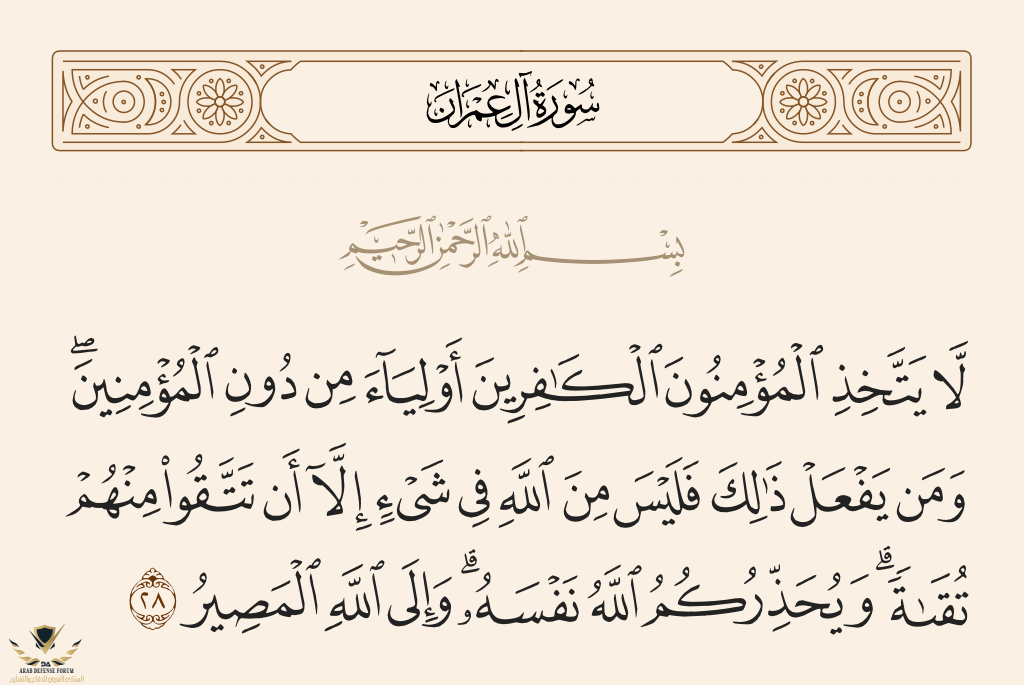 سُورَةُ آلِ عِمْرَان
بِسْمِ ٱللَّهِ ٱلرَّحْمَٰنِ ٱلرَّحِيمِ
لَّا يَتَّخِذِ ٱلْمُؤْمِنُونَ ٱلْكَٰفِرِينَ أَوْلِيَآءَ مِن دُونِ ٱلْمُؤْمِنِينَۖ
وَمَن يَفْعَلْ ذَٰلِكَ فَلَيْسَ مِنَ ٱللَّهِ فِى شَىْءٍ إِلَّآ أَن تَتَّقُوا۟ مِنْهُمْ
تُقَىٰةًۗ وَيُحَذِّرُكُمُ ٱللَّهُ نَفْسَهُۥۗ وَإِلَى ٱللَّهِ ٱلْمَصِيرُ ٢٨
DA
ARAB DEFENSE FORUM
المنتدى العربي للدفاع والتسليح